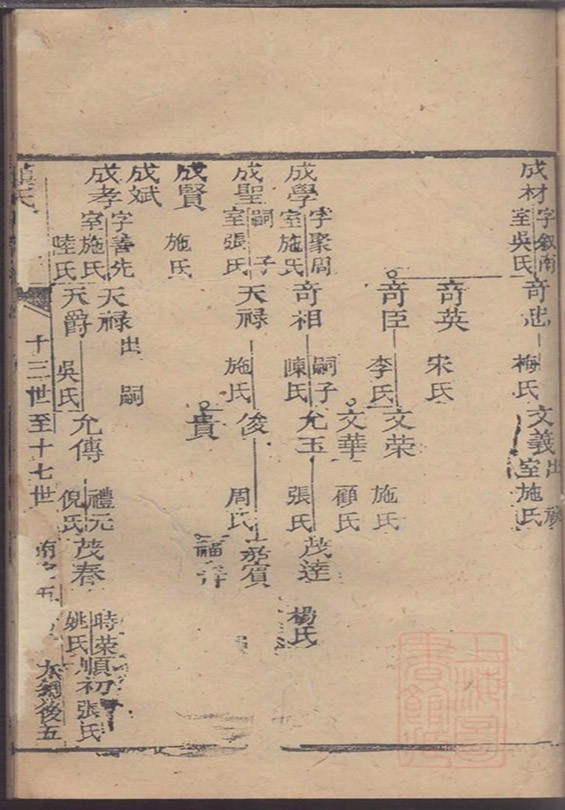 成材 字叙南 室吳氏 奇忠 梅氏 文義 出嗣 室施氏
奇英 宋氏
奇臣 李氏 文荣 施氏
文華 顧氏
成學 字聚周 室施氏 奇祖 嗣子 陳氏 允玉 張氏 茂達 楊氏
成聖 嗣子 室張氏 天禄 施氏 俊 周氏 嘉賓
貴
成賢 施氏
成斌
成孝 字善先 室施氏 睦氏 天禄 出嗣
天爵 吳氏 允傳 禮元 倪氏 茂春 時荣 姚氏 順初 張氏
十三世至十七世
後五